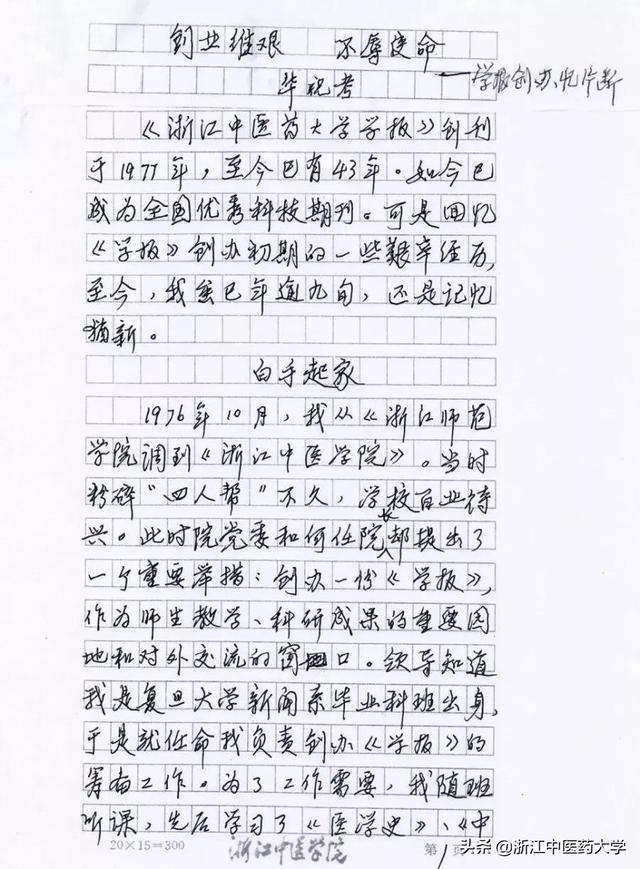 创业维艰 不辱使命
——学报创办忆片断
华祝考
《浙江中医药大学学报》创刊
于1977年，至今已有43年。如今已
成为全国优秀科技期刊。可是回忆
《学报》创办初期的一些艰辛经历，
至今，我虽已年逾九旬，还是记忆
犹新。
白手起家
1976年10月，我从《浙江师范
学院调到《浙江中医学院》。当时
粉碎“四人帮”不久，学校百业待
兴。此时院党委和何任院长都提出了
一个重要举措：创办一份《学报》，
作为师生教学、科研成果的重要园
地和对外交流的窗口。领导知道
我是复旦大学新闻系毕业科班出身，
于是就任命我负责创办《学报》的
筹备工作。为了工作需要，我随班
听课，先后学习了《医学史》、《中
20×15=300
浙江中医学院
第1页
头条@浙江中医药大学